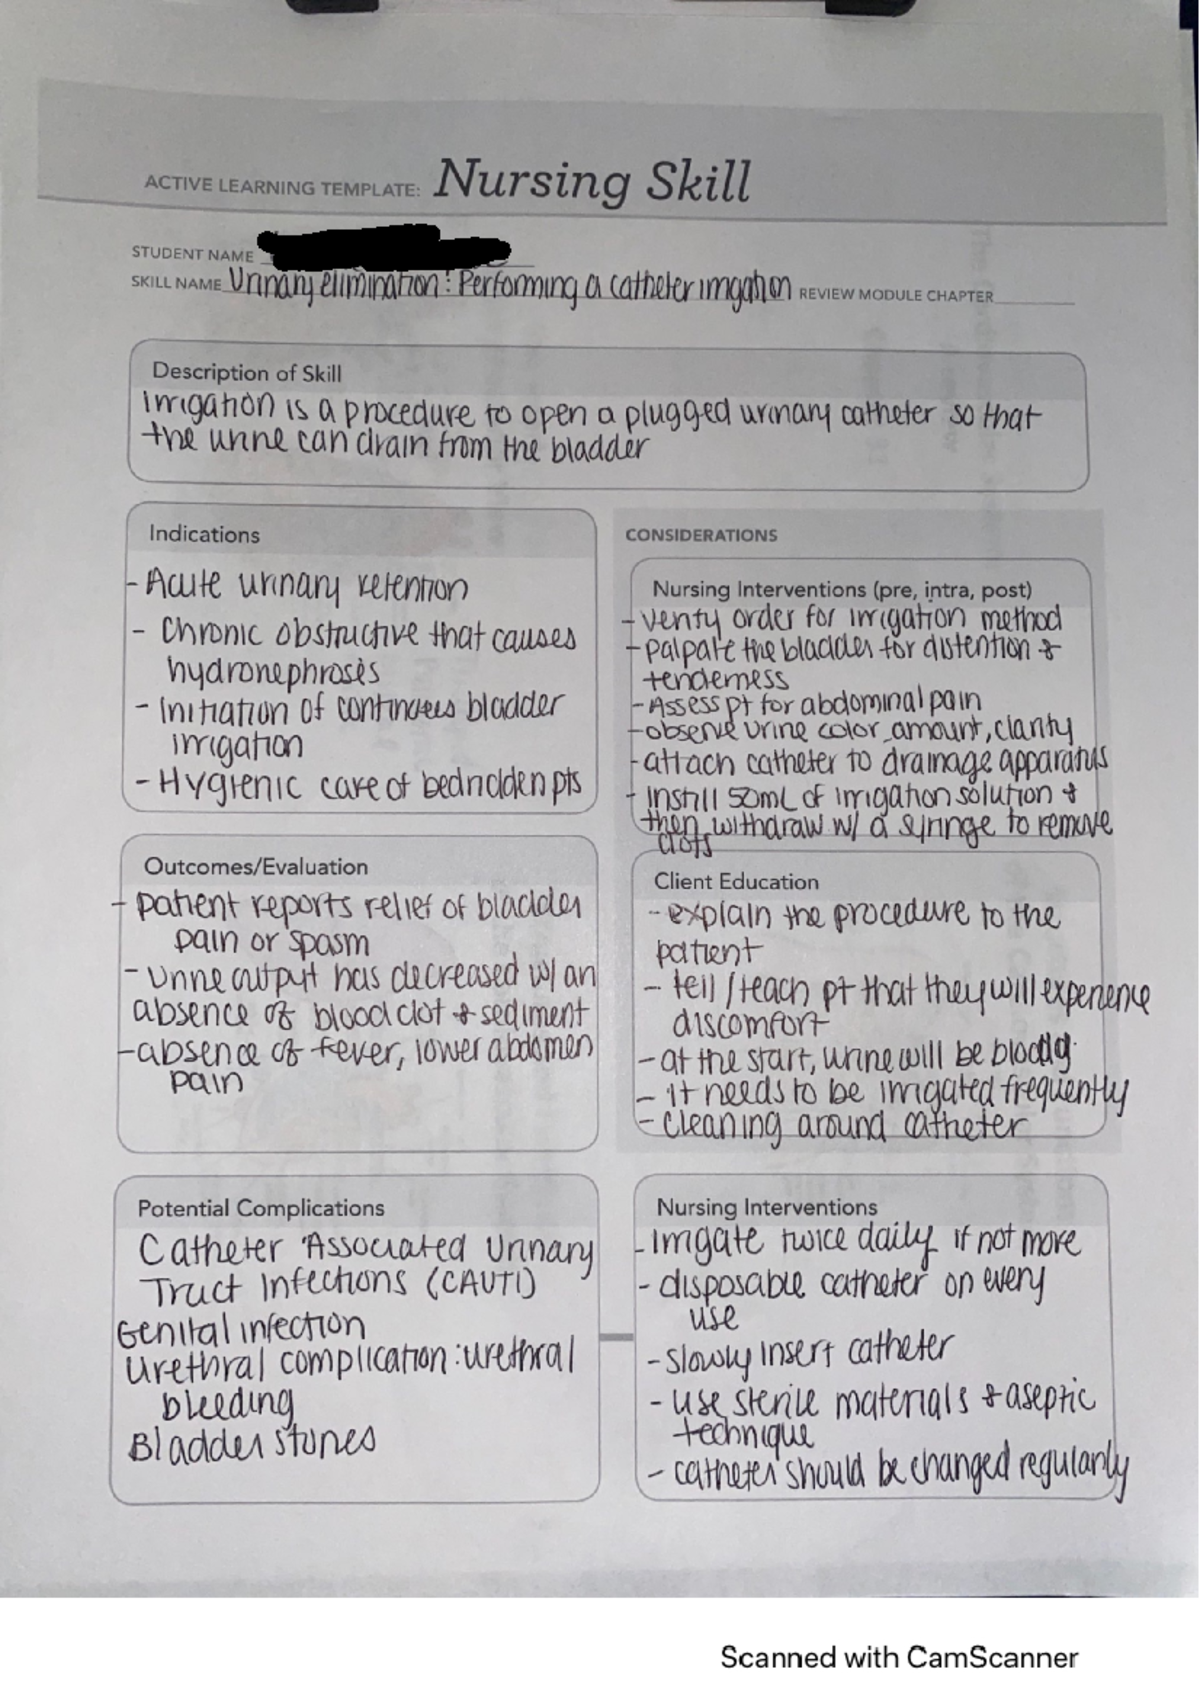 ACTIVE LEARNING TEMPLATE: Nursing Skill
STUDENT NAME
SKILL NAME Urinary elimination: Performing a catheter irrigation REVIEW MODULE CHAPTER
Description of Skill
Irrigation is a procedure to open a plugged urinary catheter so that
the urine can drain from the bladder
Indications
- Acute urinary retention
- Chronic obstructive that causes
hydronephrosis
- Initiation of continuous bladder
irrigation
- Hygienic care of bedridden pts
CONSIDERATIONS
Nursing Interventions (pre, intra, post)
- verify order for irrigation method
- palpate the bladder for distention &
tenderness
- Assess pt for abdominal pain
- observe urine color, amount, clarity
- attach catheter to drainage apparatus
- Instill 50mL of irrigation solution &
then withdraw w/ a syringe to remove
clots
Outcomes/Evaluation
- patient reports relief of bladder
pain or spasm
- urine output has decreased w/ an
absence of blood clot & sediment
- absence of fever, lower abdomen
pain
Client Education
- explain the procedure to the
patient
- tell/teach pt that they will experience
discomfort
- at the start, urine will be bloody.
- it needs to be irrigated frequently
- cleaning around catheter
Potential Complications
Catheter Associated Urinary
Truct Infections (CAUTI)
Genital infection
urethral complication: urethral
bleeding
Bladder stones
Nursing Interventions
- Irrigate twice daily if not more
- disposable catheter on every
use
- slowly insert catheter
- use sterile materials & aseptic
technique
- catheter should be changed regularly
Scanned with CamScanner